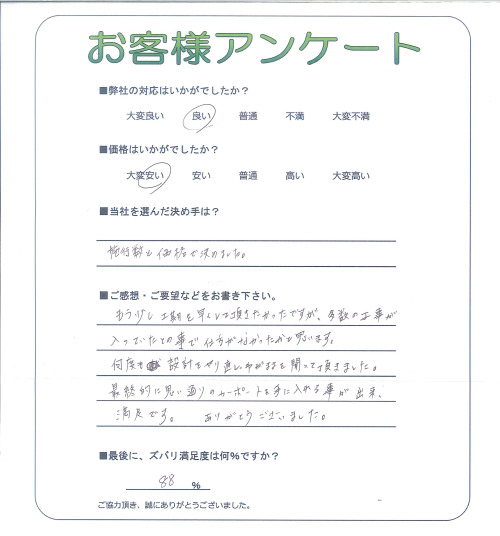 お客様アンケート
■弊社の対応はいかがでしたか？
大変良い 良い 普通 不満 大変不満
■価格はいかがでしたか？
大変安い 安い 普通 高い 大変高い
■当社を選んだ決め手は？
施行数と価格で決めました。
■ご感想・ご要望などをお書き下さい。
もう少し工期を早くして頂きたかったですが、多数の工事が
入っていたとの事で仕方がなかったかと思います。
何度も設計をやり直し、わがままを聞いて頂きました。
最終的に思い通りのカーポートを手に入れる事が出来、
満足です。 ありがとうございました。
■最後に、ズバリ満足度は何％ですか？
88 ％
ご協力頂き、誠にありがとうございました。